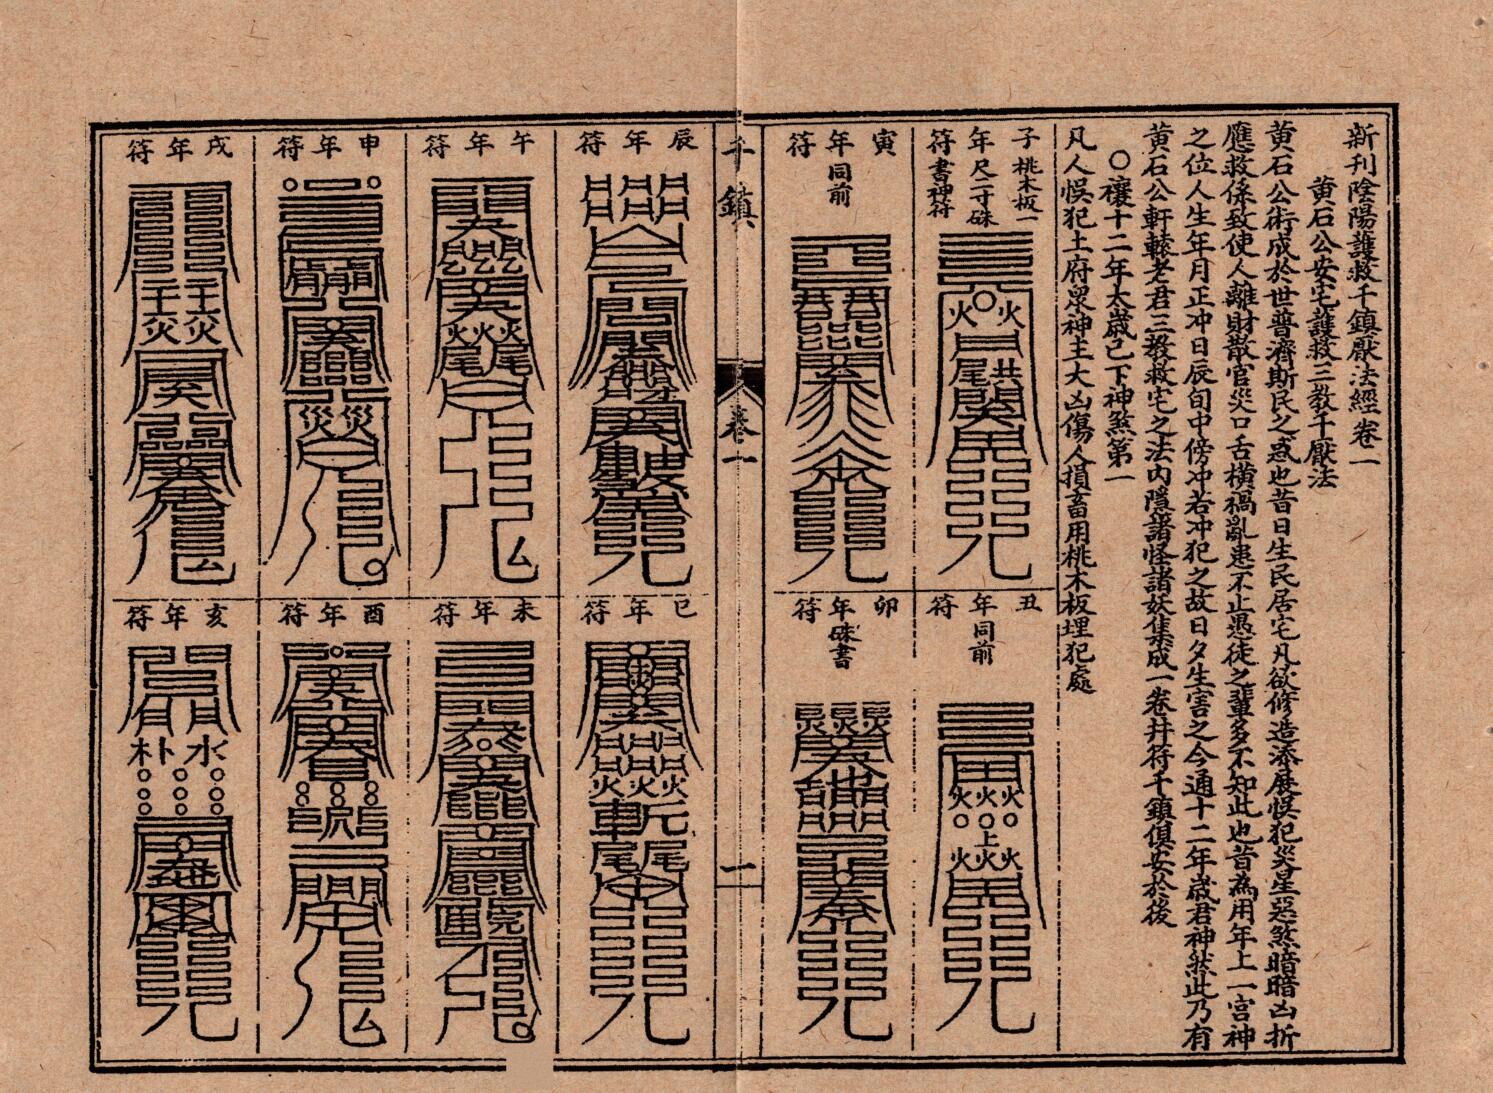 新刊陰陽護救千鎮厭法經卷一
黃石公安宅護救三教千厭法
黃石公術成於世普濟斯民之惑也昔日生民居宅凡欲修造添展悞犯災星惡煞暗暗凶折
應救係致使人離財散官災口舌橫禍亂患不止愚徒之輩多不知此也昔為用年上一宮神
之位人生年月正冲日辰旬中傍冲若冲犯之故日夕生害之今通十二年歲君神煞此乃有
黃石公軒轅老君三教救宅之法內隱諸怪諸妖集成一卷井符千鎮俱安於後
○禳十二年太歲已下神煞第一
凡人悞犯土府眾神主大凶傷人損畜用桃木板埋犯處
子年符 桃木板一尺二寸硃書神符
丑年符 同前
寅年符 同前
卯年符 硃書
千鎮 卷一 一
辰年符
巳年符
午年符
未年符
申年符
酉年符
戌年符
亥年符